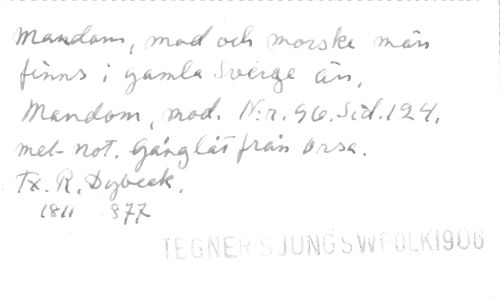 Mandom, mod och morske män
finns i gamla Sverge än,
Mandom, mod. N:r. 96. Sid. 124.
mel- not. Gånglåt från Orsa.
Tx. R. Dybeck.
1811 877
TEGNER SJUNG SV FOLK 1906